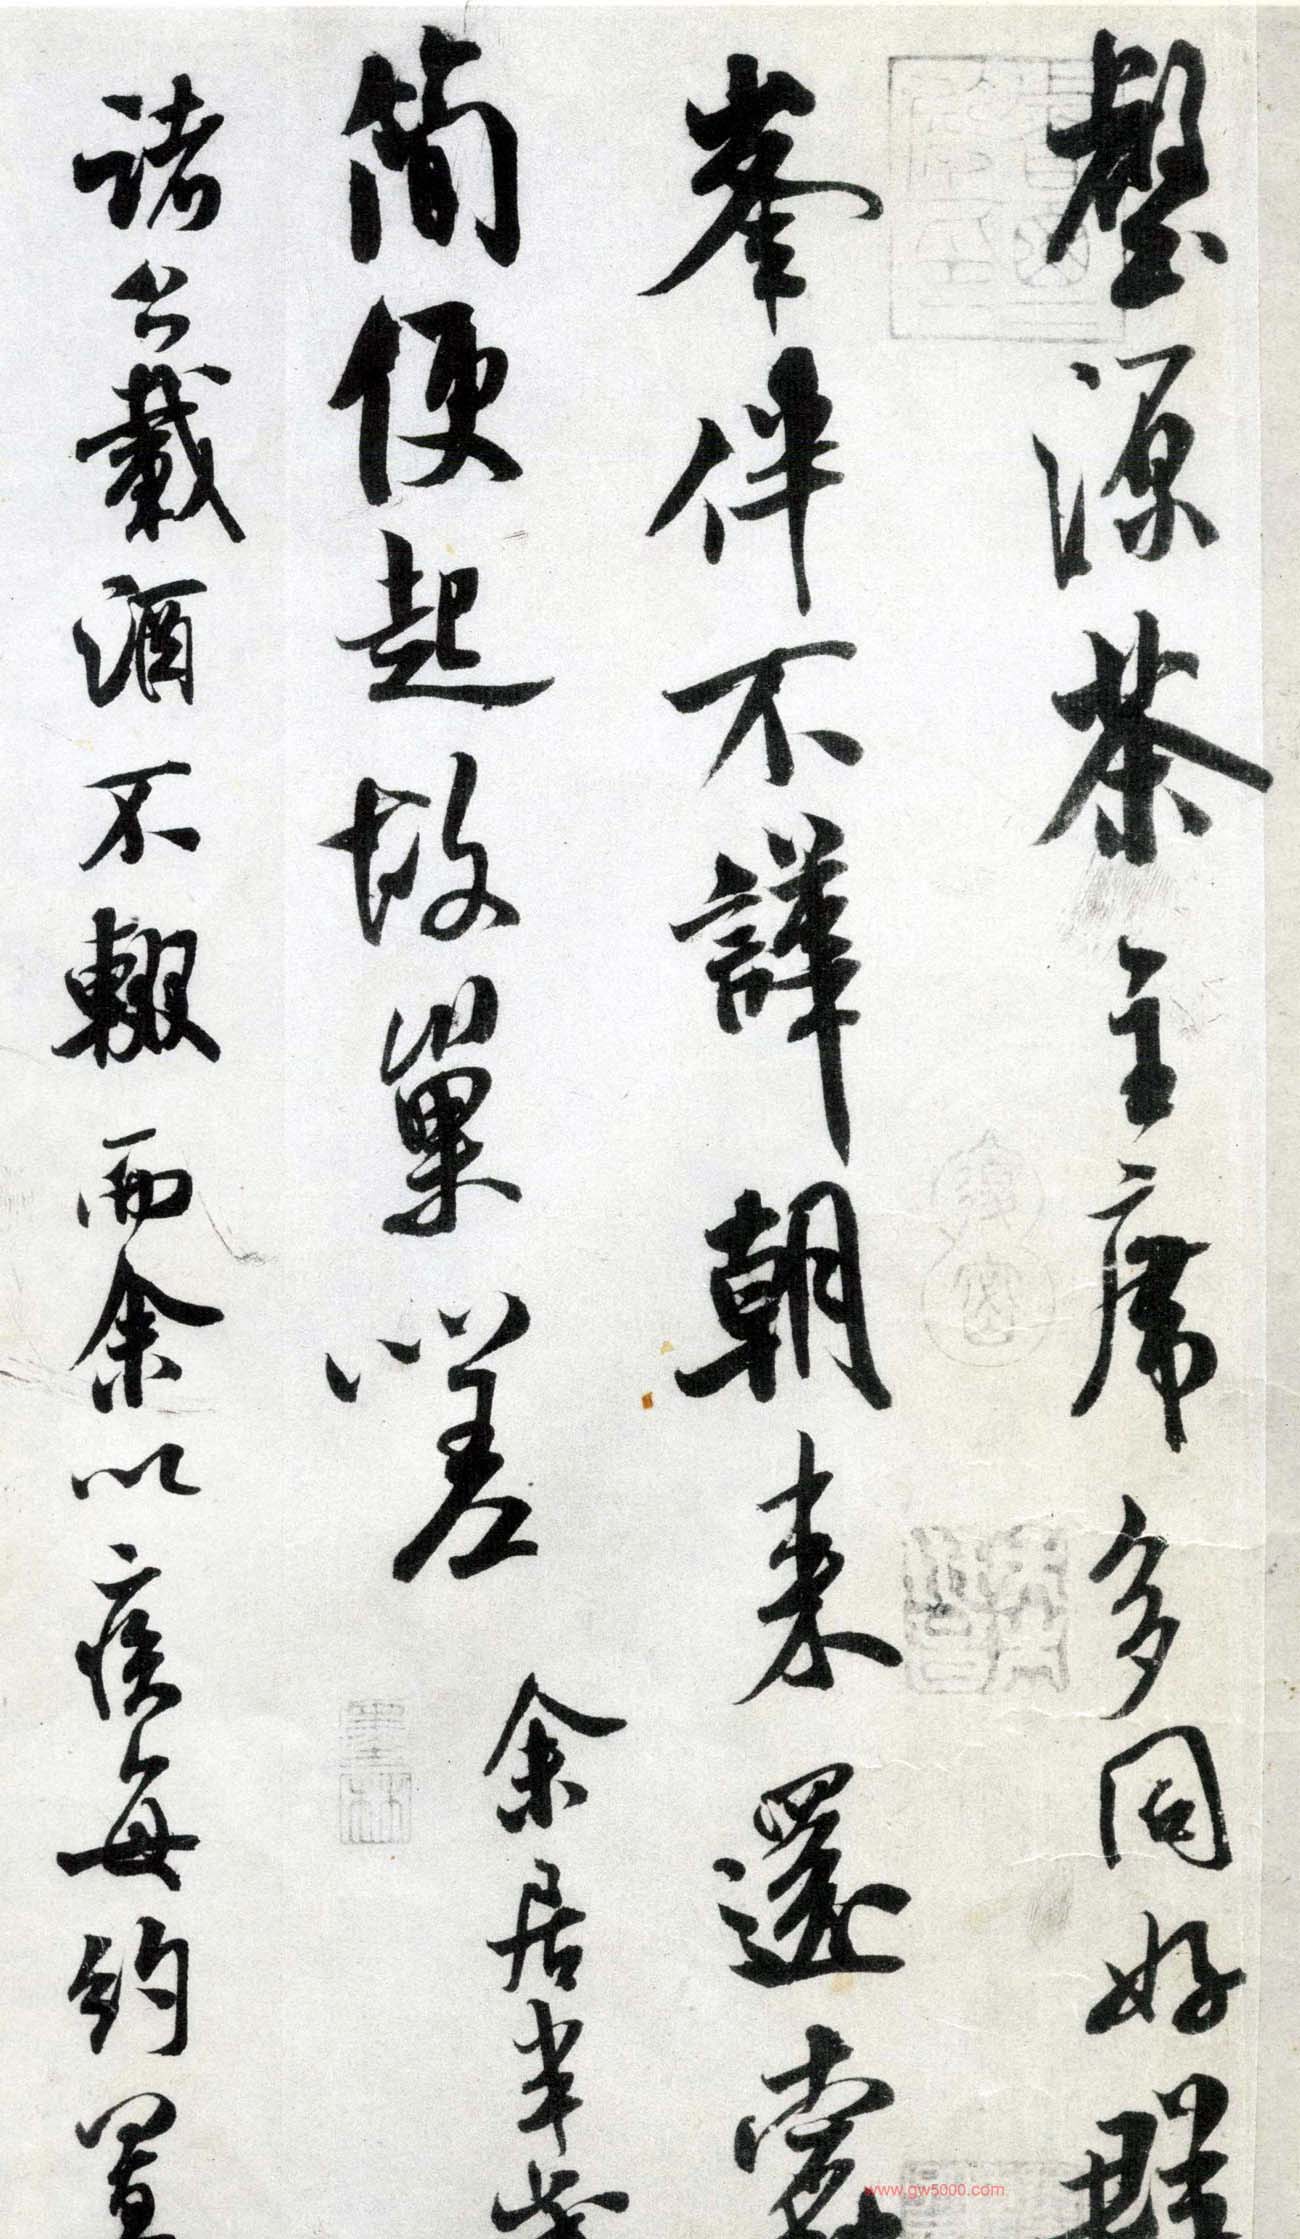 壑源茶主席多同好群
峯伴不譁朝来還蠹
簡便起故巢嗟 余居半歲
諸公載酒不輟而余以疾每約置
墨林
www.gw5000.com